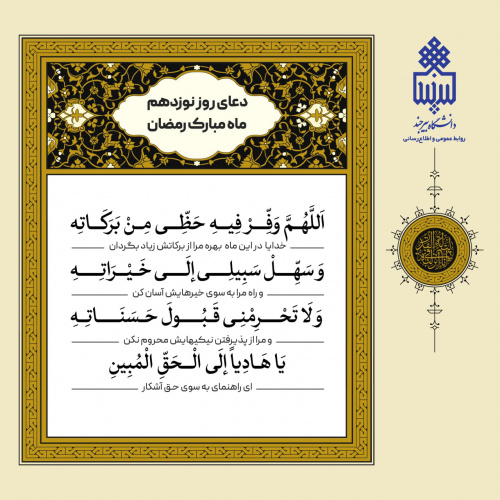 دعای روز نوزدهم
ماه مبارک رمضان
اَللّهُمَّ وَفِّرْ فیهِ حَظّی مِنْ بَرَکاتِه
خدایا در این ماه بهره مرا از برکاتش زیاد بگردان
وَ سَهِّلْ سَبیلی إلَی خَیْرَاتِه
و راه مرا به سوی خیرهایش آسان کن
وَ لَا تَحْرِمْنِی قَبُولَ حَسَنَاتِه
و مرا از پذیرفتن نیکیهایش محروم نکن
یَا هَادِیاً إلَی الْحَقِّ الْمُبِینِ
ای راهنمای به سوی حق آشکار
دانشگاه بیرجند
روابط عمومی و اطلاع‌رسانی